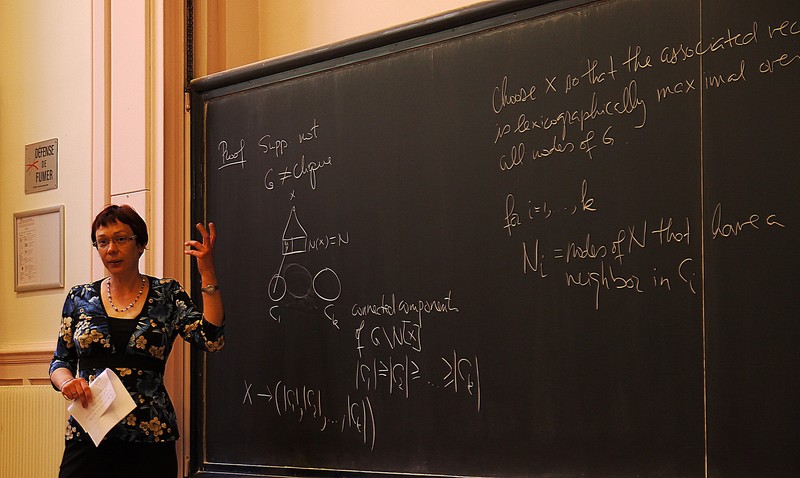 DÉFENSE
DE
FUMER
Proof Supp not
G ≠ clique
x
N(x) = N
C₁ Cₖ
connected component
of G\N[x]
|C₁| ≥ |C₂| ≥ ... ≥ |Cₖ|
X → (|C₁|, |C₂|, ..., |Cₖ|)
Choose x so that the associated vec
is lexicographically maximal over
all nodes of G
for i=1, ..., k
Nᵢ = nodes of N that have a
neighbor in Cᵢ